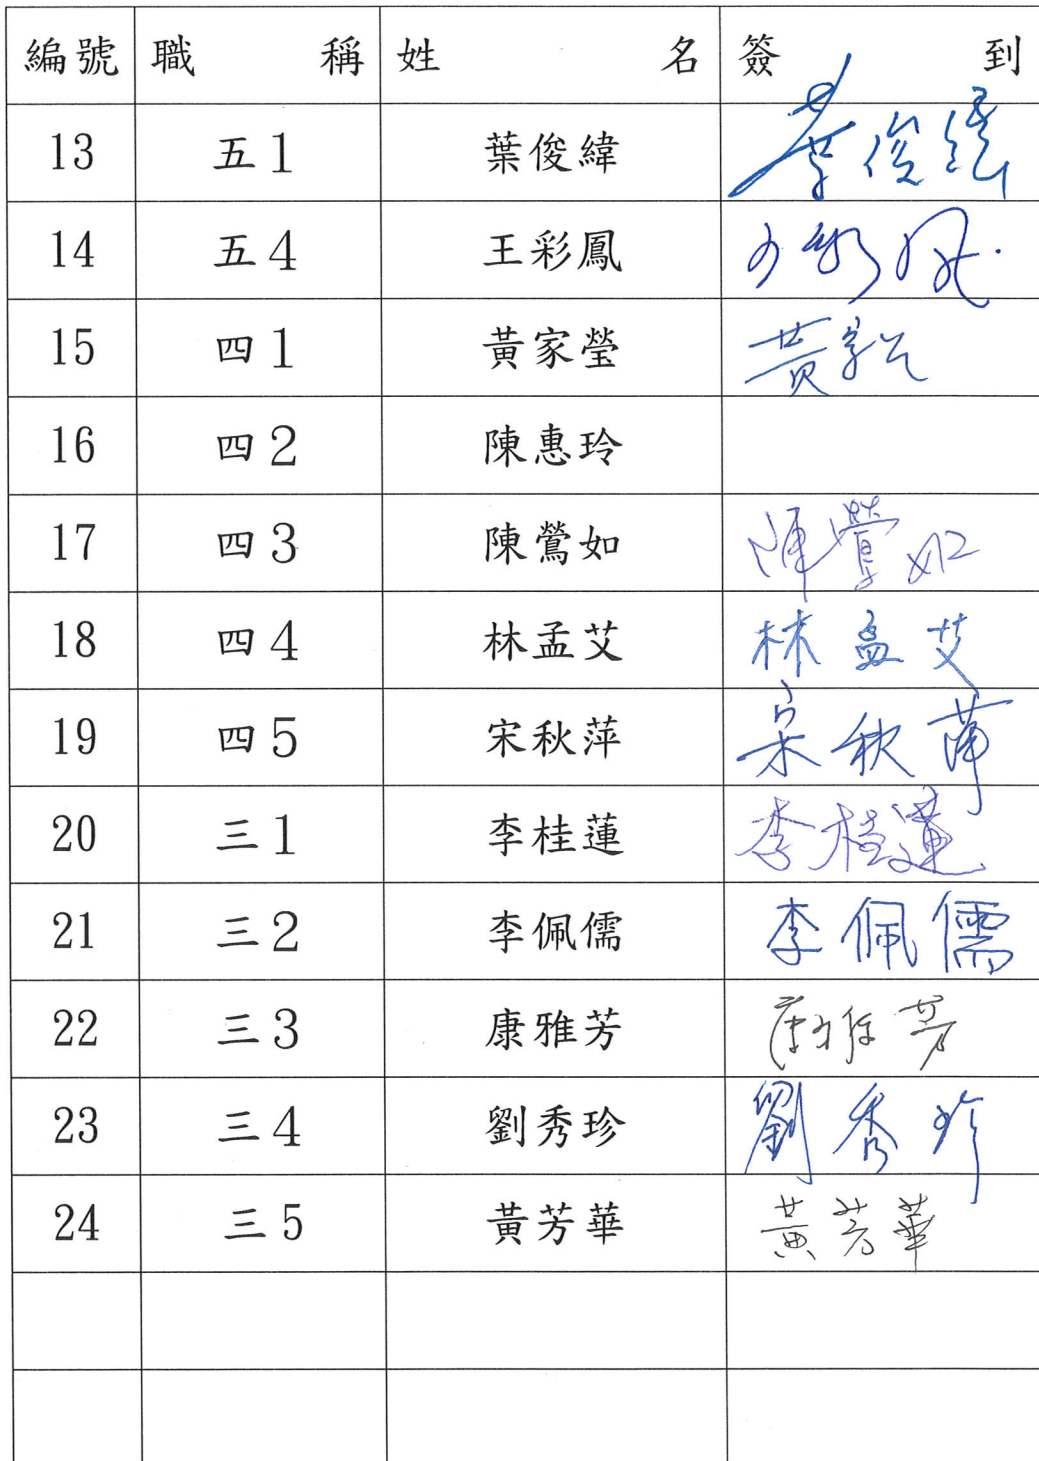 編號 職稱 姓名 簽到
13 五1 葉俊緯 葉俊緯
14 五4 王彩鳳 王彩凤
15 四1 黃家瑩 黃家瑩
16 四2 陳惠玲
17 四3 陳鶯如 陳鶯如
18 四4 林孟艾 林孟艾
19 四5 宋秋萍 宋秋萍
20 三1 李桂蓮 李桂蓮
21 三2 李佩儒 李佩儒
22 三3 康雅芳 康雅芳
23 三4 劉秀珍 劉秀珍
24 三5 黃芳華 黃芳華